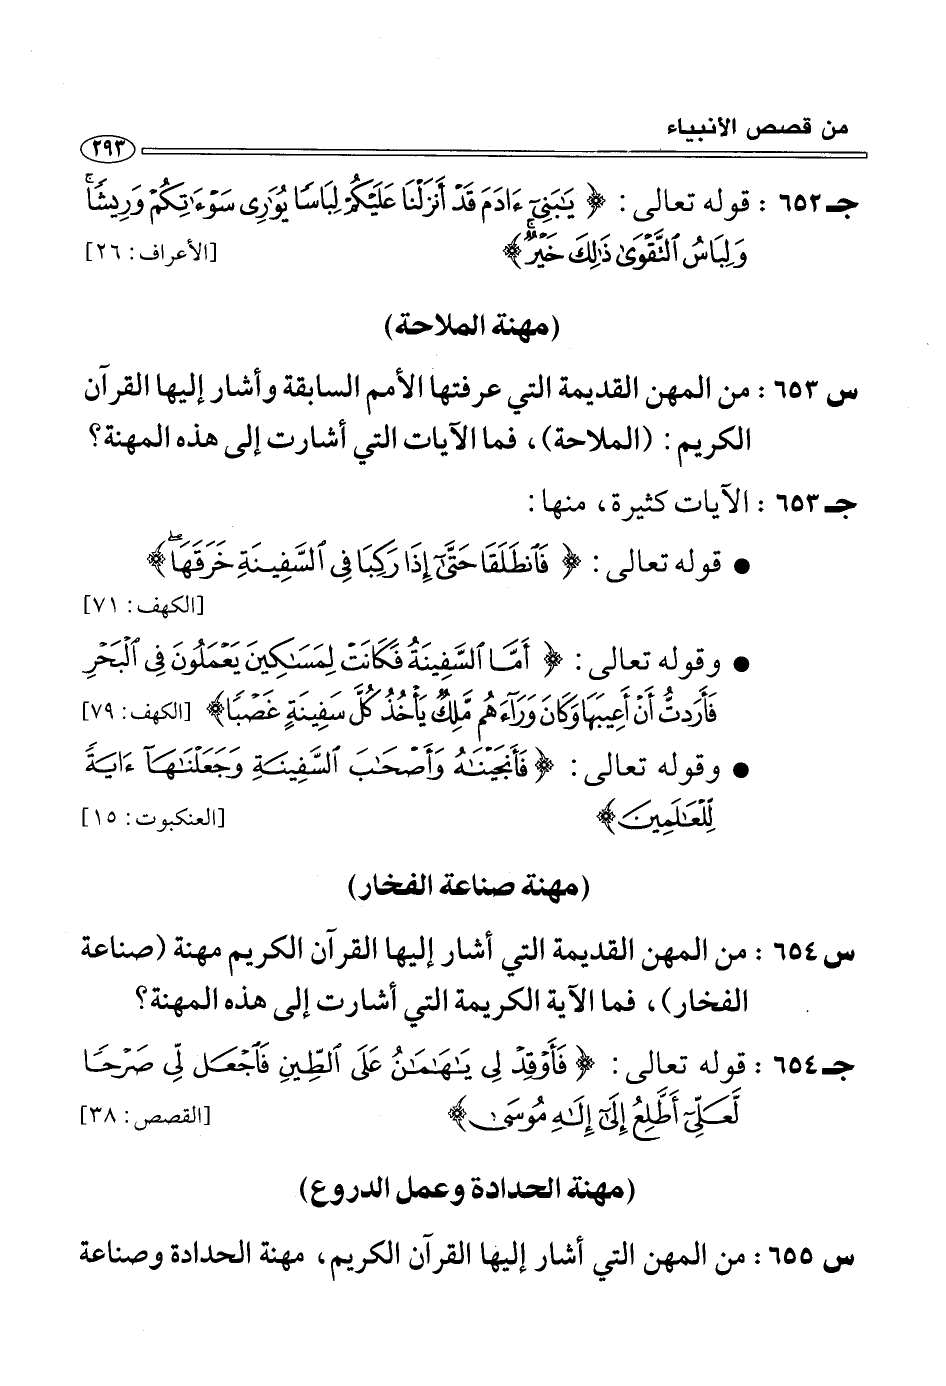 من قصص الأنبياء
٢٩٣
جـ ٦٥٢ : قوله تعالى : ﴿ يَٰبَنِىٓ ءَادَمَ قَدْ أَنزَلْنَا عَلَيْكُمْ لِبَاسًا يُوَٰرِى سَوْءَٰتِكُمْ وَرِيشًاۖ
وَلِبَاسُ ٱلتَّقْوَىٰ ذَٰلِكَ خَيْرٌۚ ﴾ [الأعراف : ٢٦]
(مهنة الملاحة)
س ٦٥٣ : من المهن القديمة التي عرفتها الأمم السابقة وأشار إليها القرآن
الكريم : (الملاحة)، فما الآيات التي أشارت إلى هذه المهنة؟
جـ ٦٥٣ : الآيات كثيرة، منها :
● قوله تعالى : ﴿ فَٱنطَلَقَا حَتَّىٰٓ إِذَا رَكِبَا فِى ٱلسَّفِينَةِ خَرَقَهَاۖ ﴾
[الكهف : ٧١]
● وقوله تعالى : ﴿ أَمَّا ٱلسَّفِينَةُ فَكَانَتْ لِمَسَٰكِينَ يَعْمَلُونَ فِى ٱلْبَحْرِ
فَأَرَدتُّ أَنْ أَعِيبَهَا وَكَانَ وَرَآءَهُم مَّلِكٌ يَأْخُذُ كُلَّ سَفِينَةٍ غَصْبًا ﴾ [الكهف : ٧٩]
● وقوله تعالى : ﴿ فَأَنجَيْنَٰهُ وَأَصْحَٰبَ ٱلسَّفِينَةِ وَجَعَلْنَٰهَآ ءَايَةً
لِّلْعَٰلَمِينَ ﴾ [العنكبوت : ١٥]
(مهنة صناعة الفخار)
س ٦٥٤ : من المهن القديمة التي أشار إليها القرآن الكريم مهنة (صناعة
الفخار)، فما الآية الكريمة التي أشارت إلى هذه المهنة؟
جـ ٦٥٤ : قوله تعالى : ﴿ فَأَوْقِدْ لِى يَٰهَٰمَٰنُ عَلَى ٱلطِّينِ فَٱجْعَل لِّى صَرْحًا
لَّعَلِّىٓ أَطَّلِعُ إِلَىٰٓ إِلَٰهِ مُوسَىٰ ﴾ [القصص : ٣٨]
(مهنة الحدادة وعمل الدروع)
س ٦٥٥ : من المهن التي أشار إليها القرآن الكريم، مهنة الحدادة وصناعة